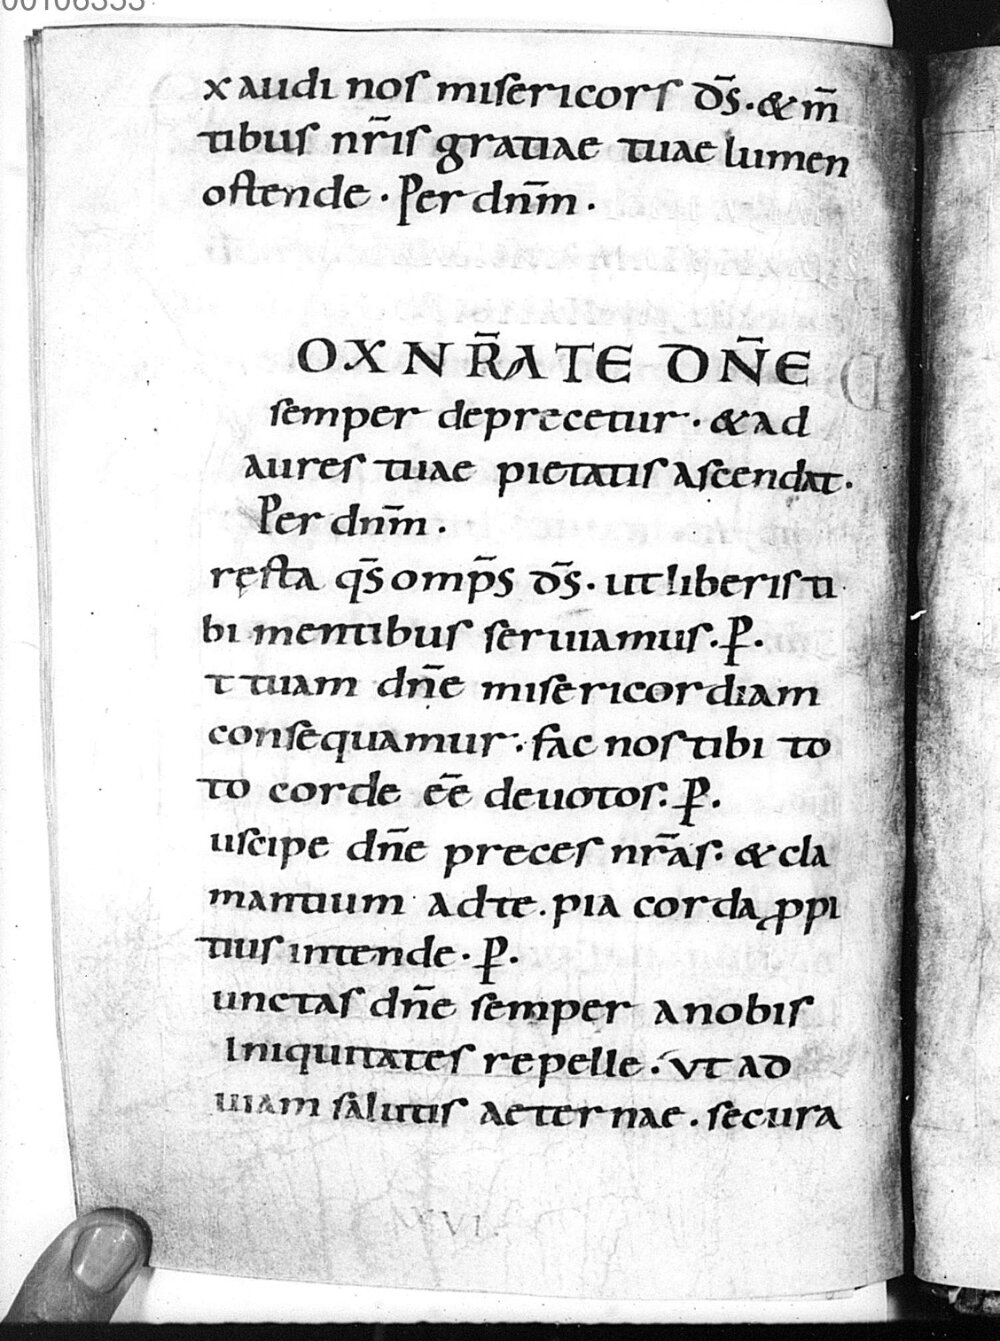 00106353
xaudi nos misericors d̄s. & m̄
tibus nr̄is gratiae tuae lumen
ostende. Per dnm̄.
OX NR̄A TE DN̄E
semper deprecetur. & ad
aures tuae pietatis ascendat.
Per dnm̄.
ręsta qs̄ omp̄s d̄s. ut liberis ti
bi mentibus seruiamus. P̲.
t tuam dn̄e misericordiam
consequamur. fac nos tibi to
to corde ēē deuotos. P̲.
uscipe dn̄e preces nr̄as. & cla
mantium ad te. pia corda ꝓpi
tius intende. P̲.
unctas dn̄e semper a nobis
Iniquitates repelle. ut ad
uiam salutis aeternae. secura